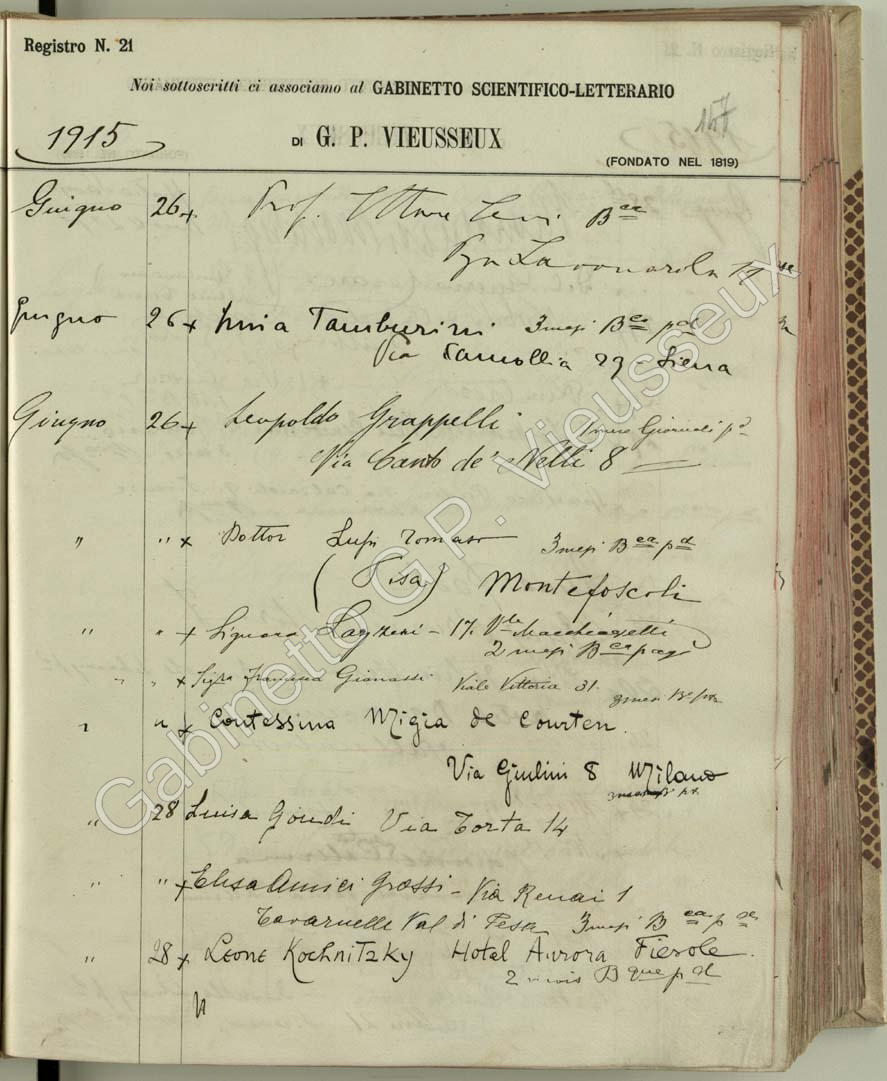 Registro N. 21
Noi sottoscritti ci associamo al GABINETTO SCIENTIFICO-LETTERARIO
157
1915
DI G. P. VIEUSSEUX
(FONDATO NEL 1819)
Giugno 26 x Prof. Ettore Levi Bca
Pza Savonarola
Giugno 26 x Tamburini 3 mesi Bca pd
Via Camollia 29 - Siena
Giugno 26 x Leopoldo Grappelli 1 mese Giornali pd
Via Canto de' Nelli 8
" " x Dottor Lupi Tomaso 3 mesi Bca pd
(Pisa) Montefoscoli
" " x Signora - 17. Vle Macchiavelli
2 mesi Bca pag
" " x Sigra Gianassi Viale Vittoria 31.
3 mesi
" " x Contessina Migia de Courten.
Via Giulini 8 Milano
" 28 Luisa Via Torta 14
" " x Elisa Amici Grossi - Via Renai 1
Tavarnelle Val di Pesa 3 mesi Bca
" 28 x Leone Kochnitzky Hotel Aurora Fiesole.
2 mois Bque pd
Gabinetto G.P. Vieusseux